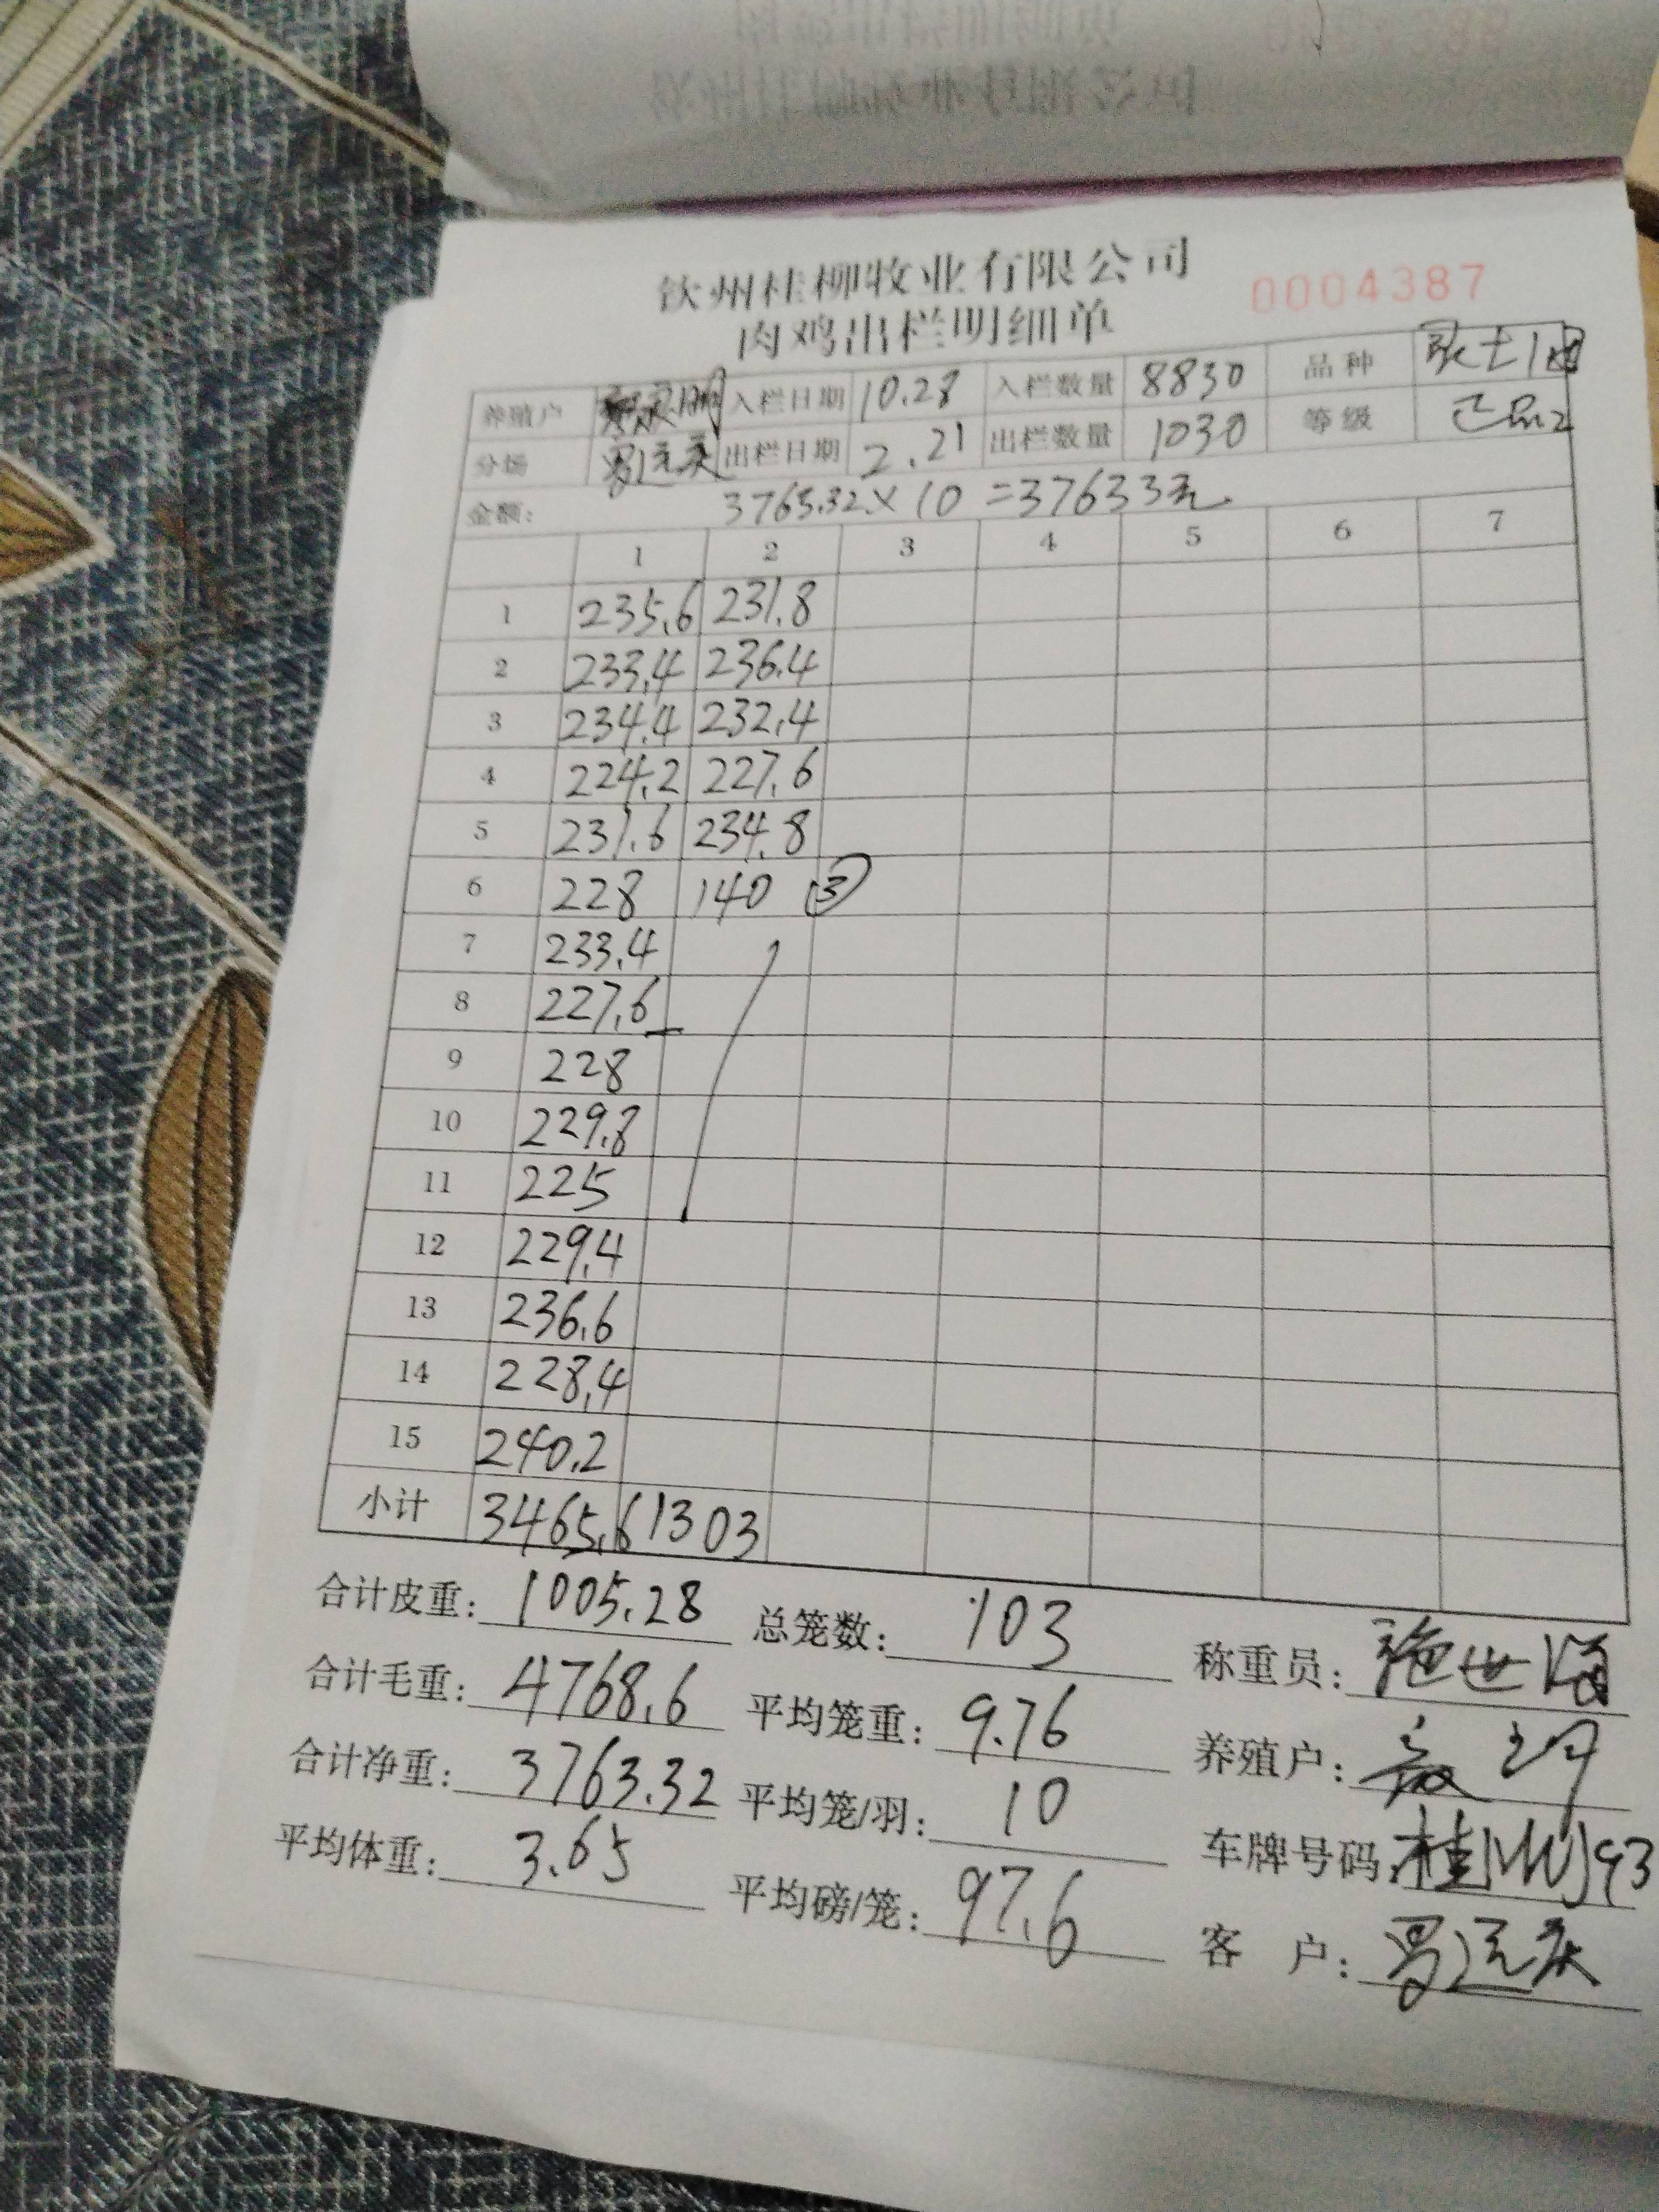 钦州桂柳牧业有限公司
肉鸡出栏明细单 0004387
养殖户 入栏日期 10.28 入栏数量 8830 品种
分场 出栏日期 2.21 出栏数量 1030 等级
金额: 3763.32 × 10 = 37633元
1 2 3 4 5 6 7
1 235.6 231.8
2 233.4 236.4
3 234.4 232.4
4 224.2 227.6
5 231.6 234.8
6 228 140 ③
7 233.4
8 227.6
9 228
10 229.8
11 225
12 229.4
13 236.6
14 228.4
15 240.2
小计 3465.6 1303
合计皮重: 1005.28 总笼数: 103 称重员: 施世海
合计毛重: 4768.6 平均笼重: 9.76 养殖户:
合计净重: 3763.32 平均笼/羽: 10 车牌号码: 桂
平均体重: 3.65 平均磅/笼: 97.6 客 户: